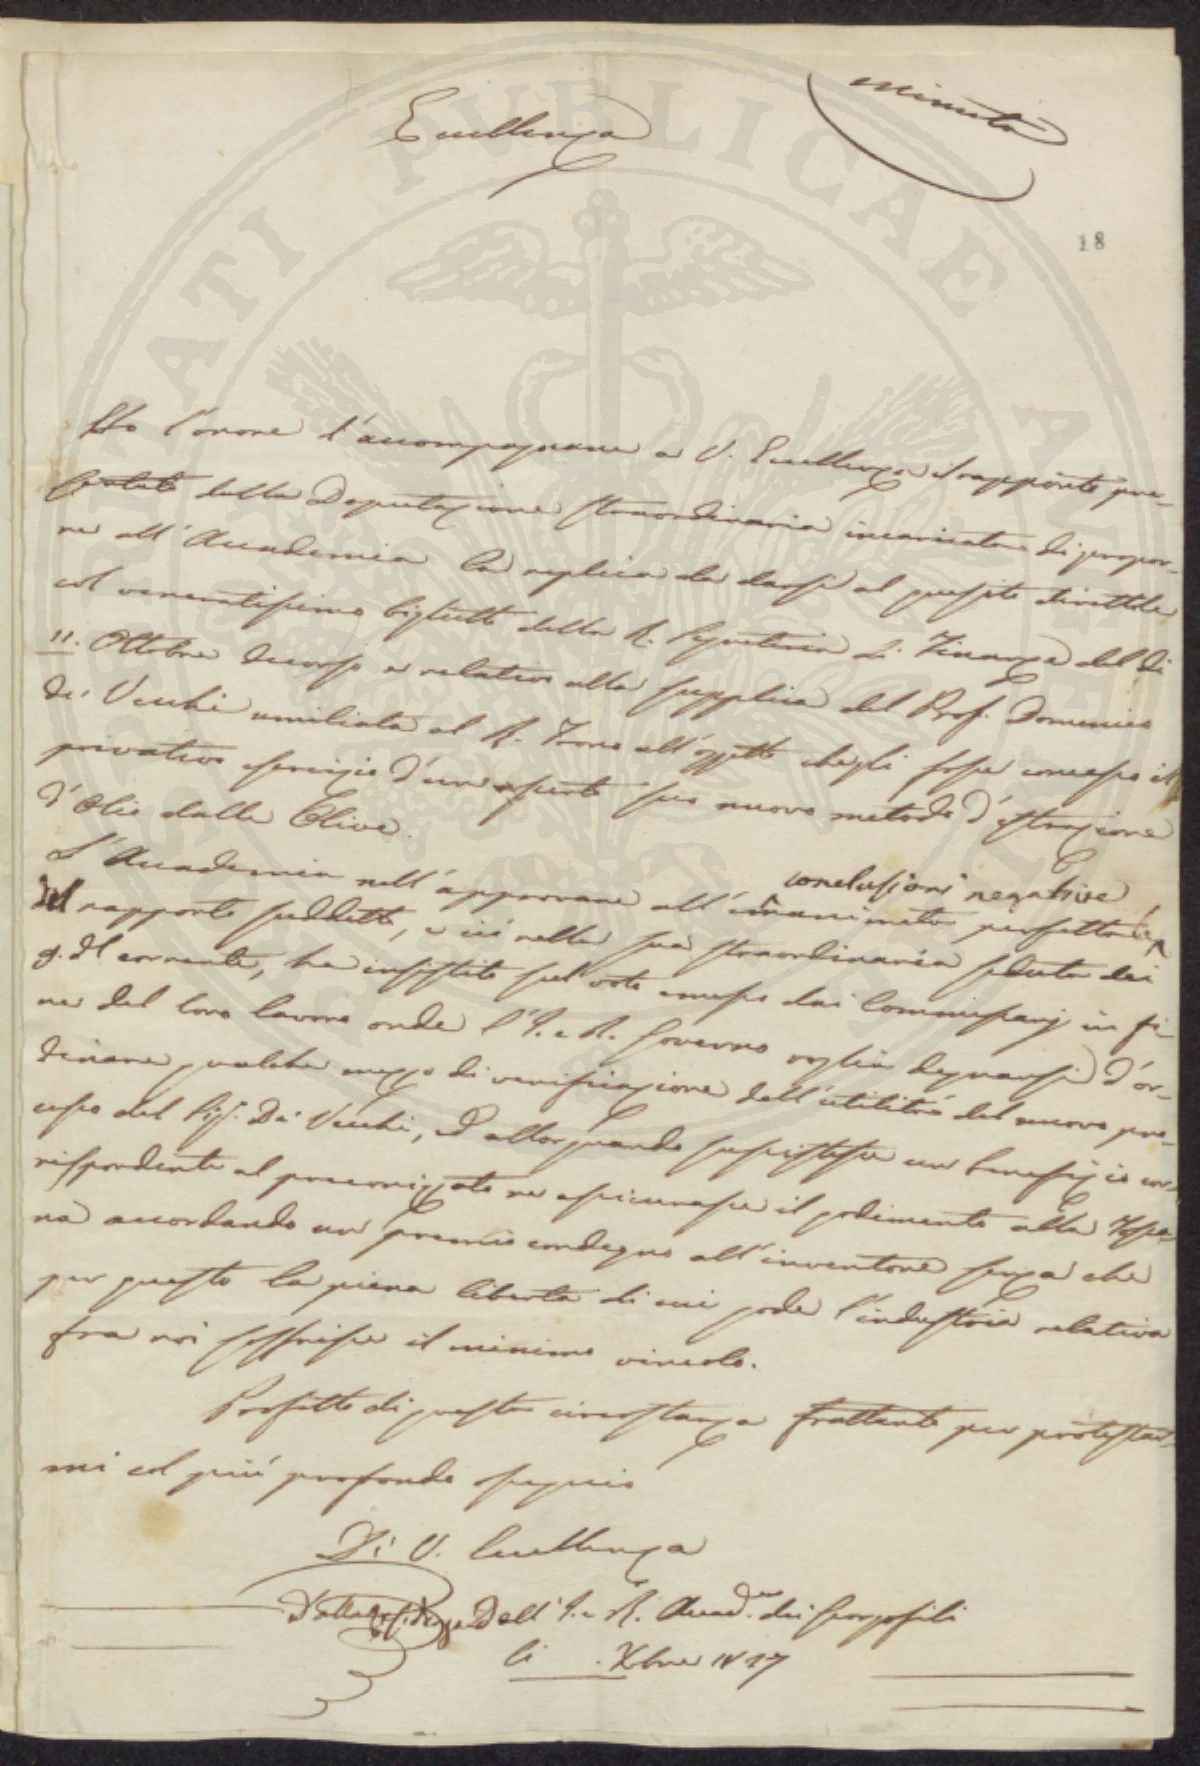 minuta
Eccellenza
18
Ho l'onore d'accompagnare a V. Eccellenza il rapporto pre-
sentato dalla Deputazione straordinaria incaricata di propor-
re all'Accademia la replica da darsi al quesito direttole
col veneratissimo biglietto della R. Segreteria di Finanze del di
11. Ottobre decorso e relativo alla supplica del Prof. Domenico
de' Vecchi umiliata al R. Trono all'oggetto che gli fosse concesso il
privativo esercizio d'un asserto suo nuovo metodo d'estrazione
d'Olio dalle Olive.
L'Accademia nell'approvare all'unanimità perfetta le
conclusioni negative
del rapporto suddetto, e ciò nella sua straordinaria seduta dei
9. del corrente, ha insistito sul voto emesso dai Commissarj in fi
ne del loro lavoro onde l'I. e R. Governo voglia degnarsi d'or-
dinare qualche mezzo di verificazione dell'utilità del nuovo pro-
cesso del Sig. De' Vecchi, ed allorquando sussistesse un benefizio cor-
rispondente al preconizzato ne assicurasse il godimento alla Tosca-
na accordando un premio condegno all'inventore senza che
per questo la piena libertà di cui gode l'industria relativa
fra noi soffrisse il minimo vincolo.
Profitto di questa circostanza frattanto per protestar-
mi col più profondo ossequio
Di V. Eccellenza
Dalla Residenza Dell'I. e R. Accad.a dei Georgofili
li . Xbre 1817